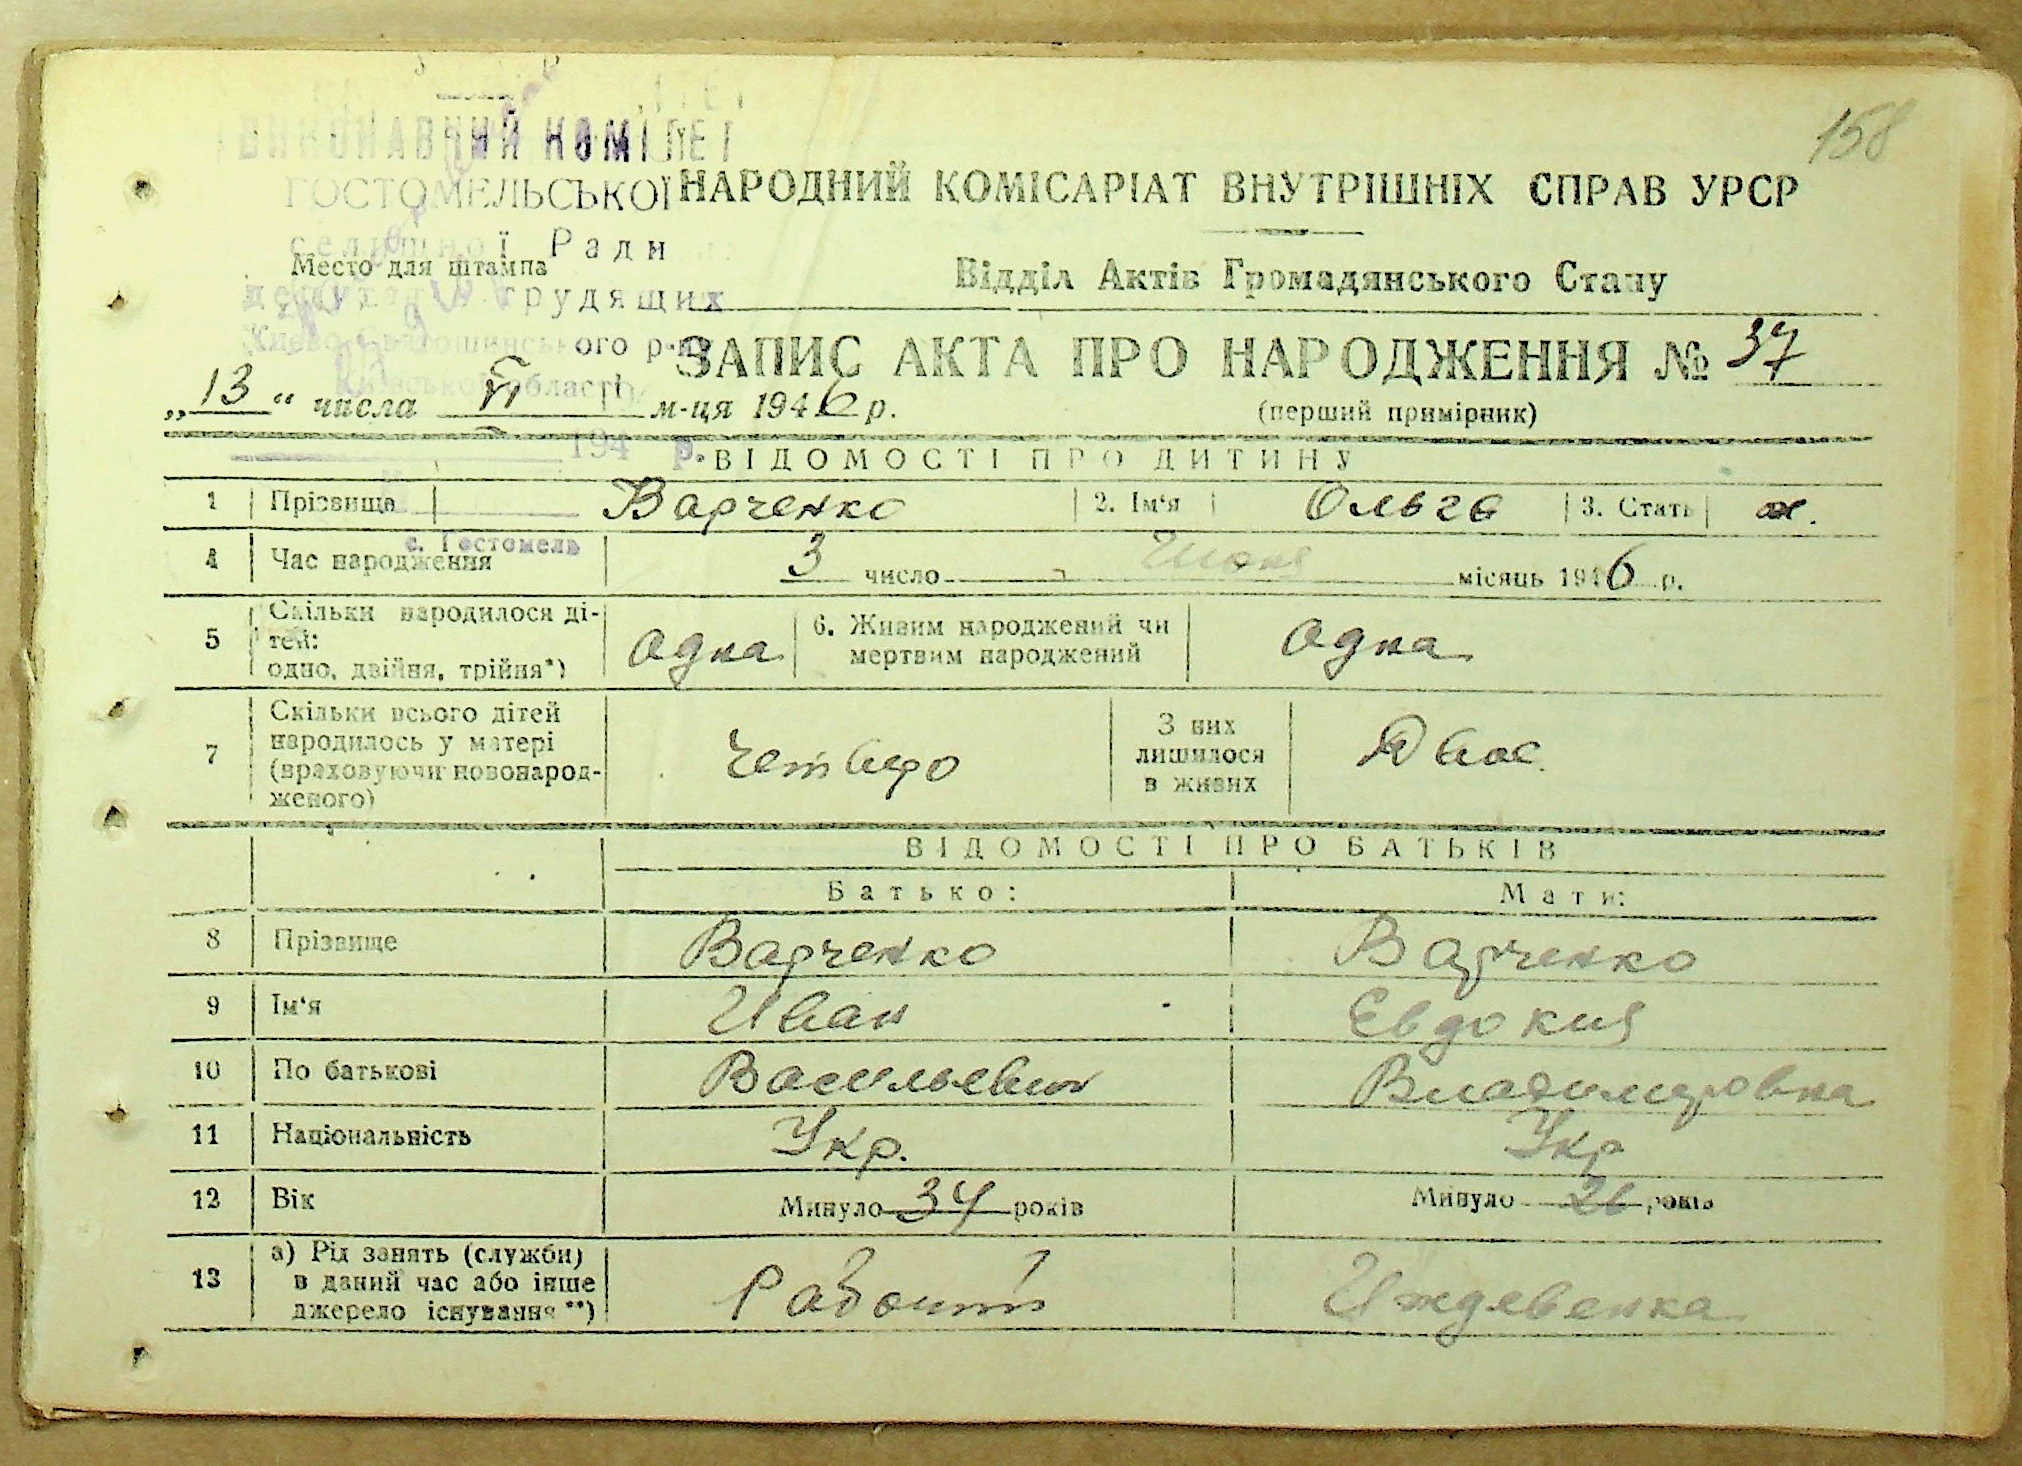 158
ВИКОНАВЧИЙ КОМІТЕТ
ГОСТОМЕЛЬСЬКОЇ
НАРОДНИЙ КОМІСАРІАТ ВНУТРІШНІХ СПРАВ УРСР
селищної Ради
Место для штампа
Відділ Актів Громадянського Стану
депутатів трудящих
ого р-ну
ЗАПИС АКТА ПРО НАРОДЖЕННЯ № 37
Київської області
„13“ числа VI м-ця 1946 р.
(перший примірник)
194 р.
ВІДОМОСТІ ПРО ДИТИНУ
1 Прізвище Варченко 2. Ім'я Ольга 3. Стать ж.
с. Гостомель
4 Час народження 3 число Июня місяць 1946 р.
5 Скільки народилося ді-
тей:
одно, двійня, трійня*) одна
6. Живим народжений чи
мертвим народжений одна
7 Скільки всього дітей
народилось у матері
(враховуючи новонарод-
женого) четверо
З них
лишилося
в живих Двое
ВІДОМОСТІ ПРО БАТЬКІВ
Батько: Мати:
8 Прізвище Варченко Варченко
9 Ім'я Иван Евдокия
10 По батькові Васильевич Владимировна
11 Національність Укр. Укр
12 Вік Минуло 34 років Минуло 26 років
13 а) Рід занять (служби)
в даний час або інше
джерело існування**) Иждевенка